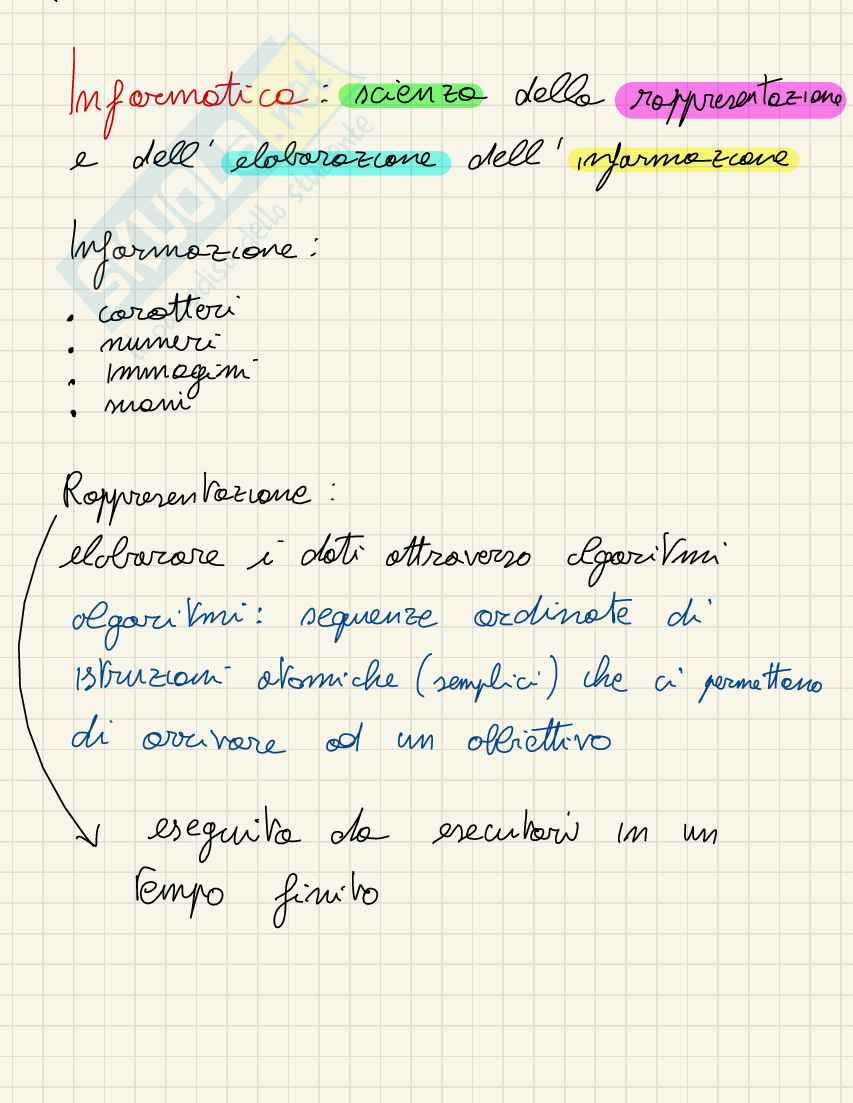 Informatica: scienza della rappresentazione
e dell' elaborazione dell' informazione
Informazione:
. caratteri
. numeri
. immagini
. suoni
Rappresentazione:
elaborare i dati attraverso algoritmi
algoritmi: sequenze ordinate di
istruzioni atomiche (semplici) che ci permettono
di arrivare ad un obbiettivo
eseguita da esecutori in un
tempo finito
SKUOLA.net
il paradiso dello studente